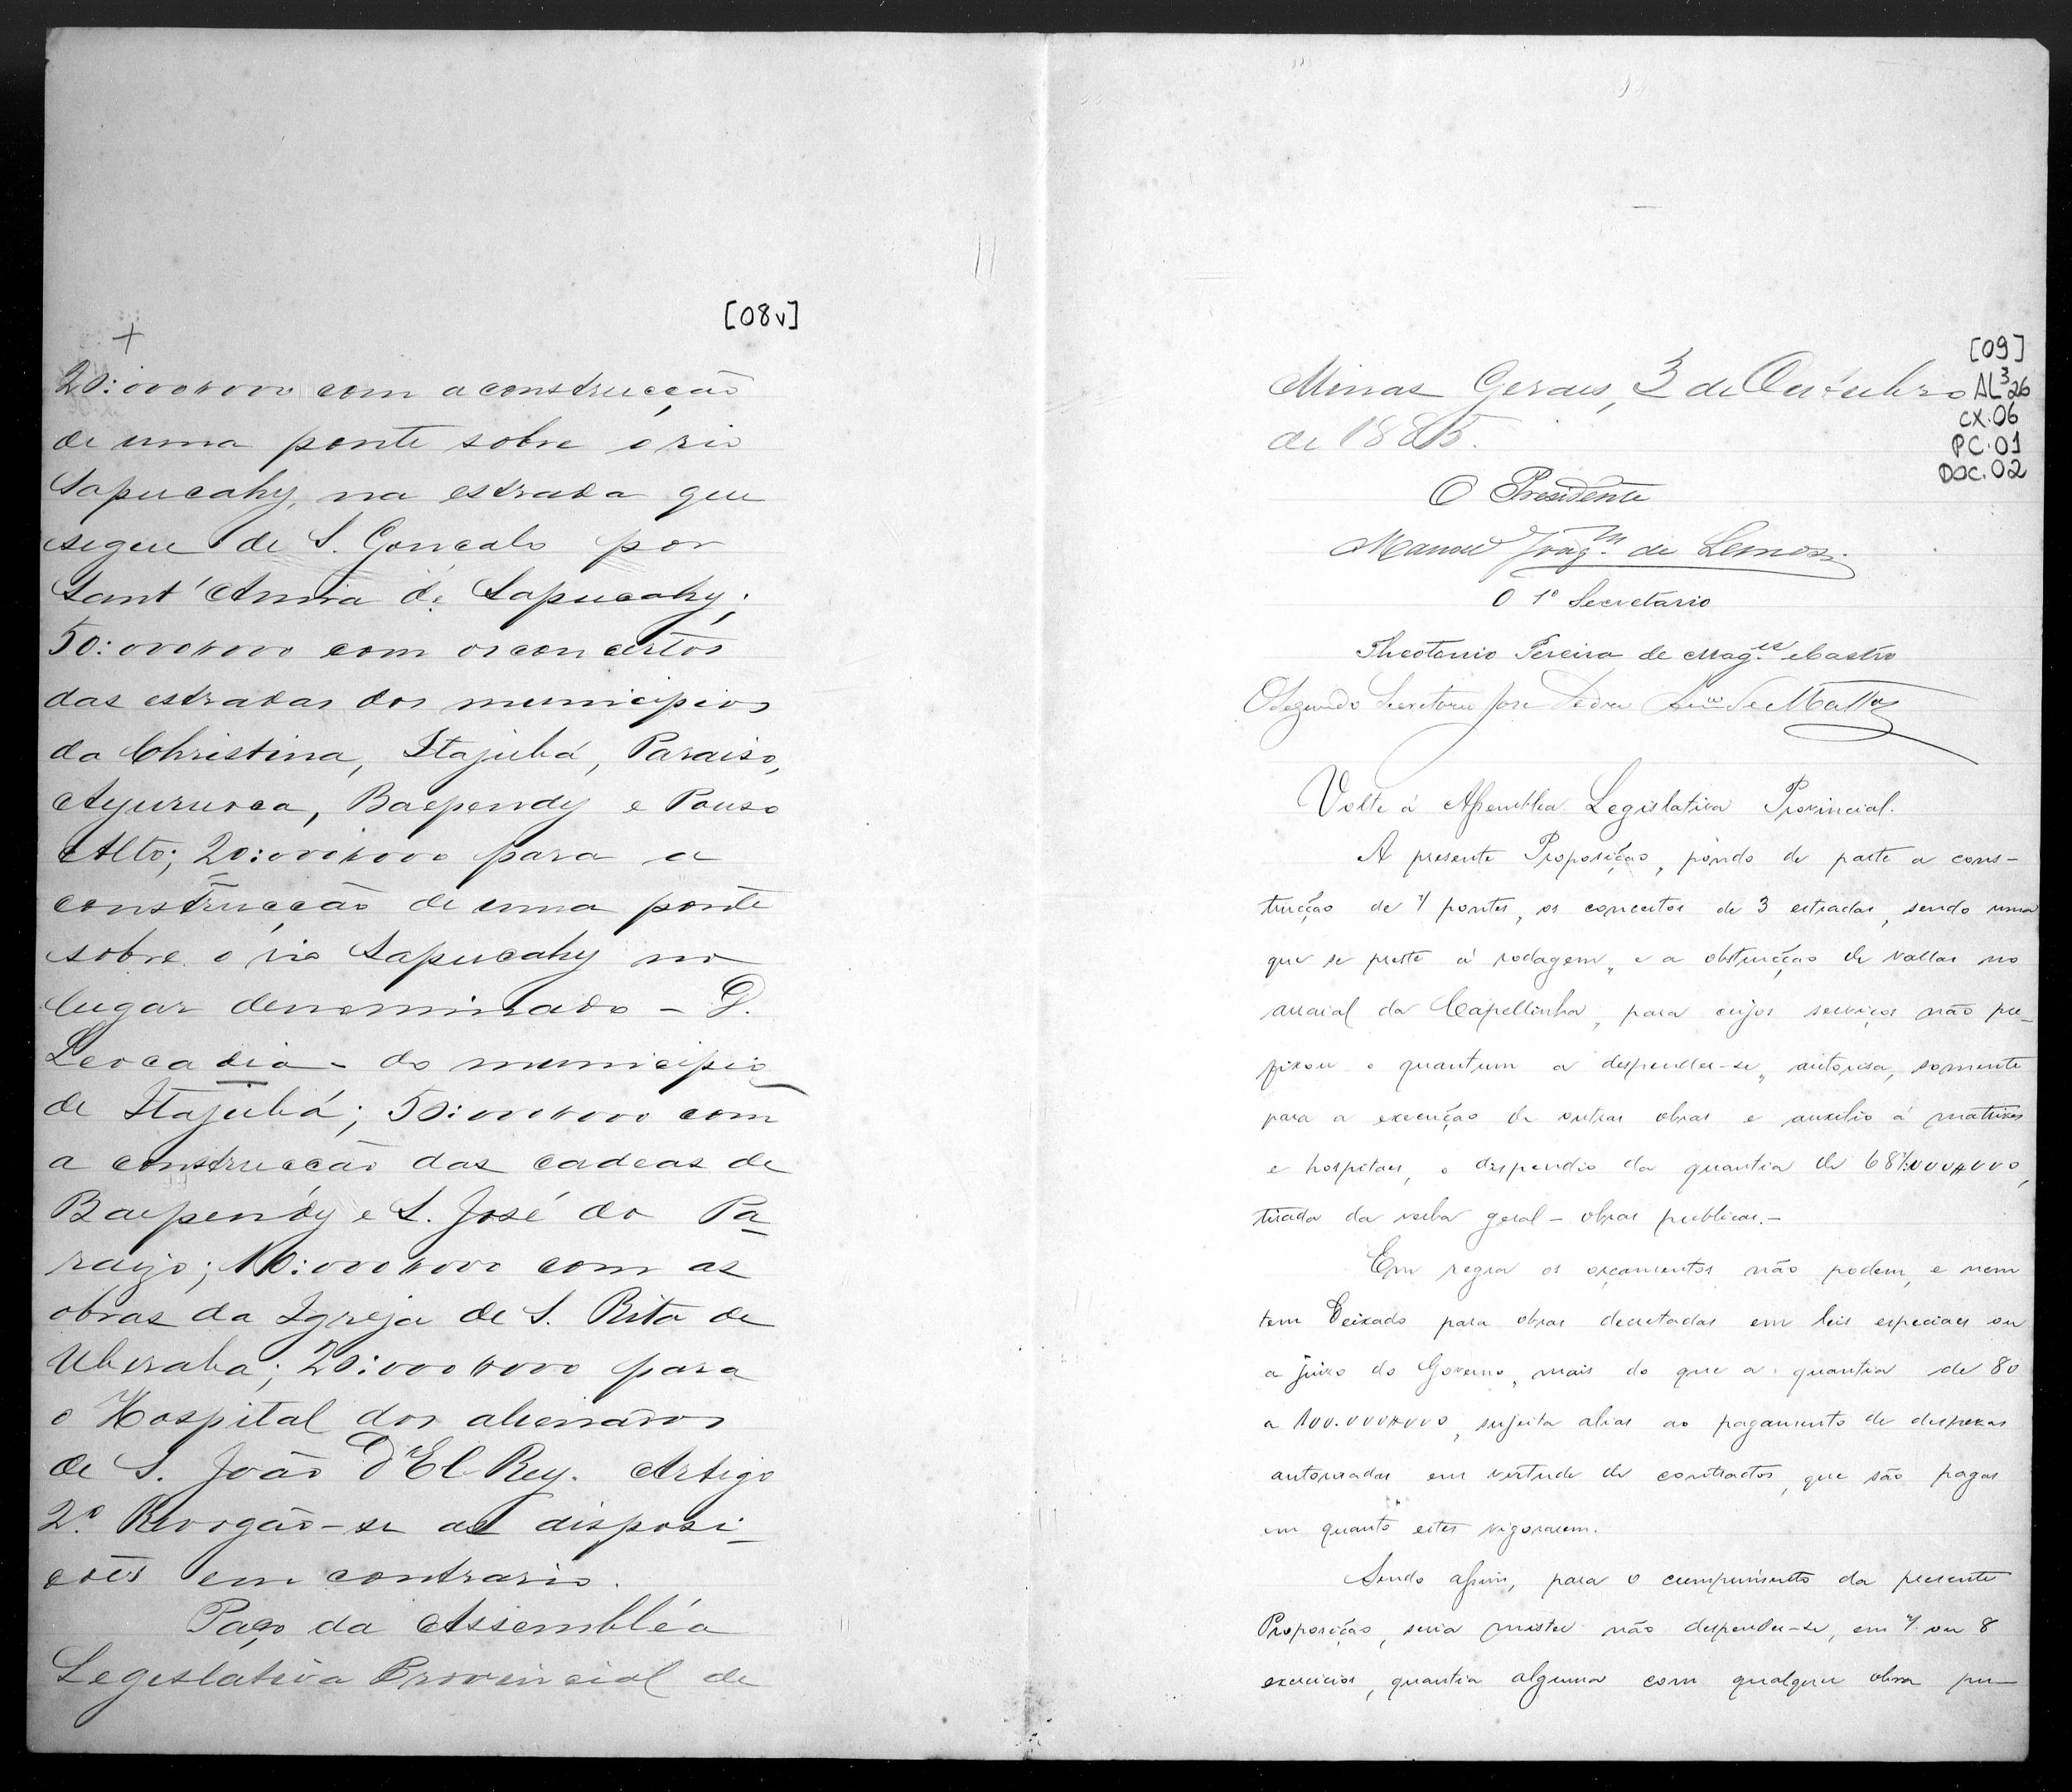 [08v]
+
20:000$000 com a construcção
de uma ponte sobre o rio
Sapucahy, na estrada que
segue de S. Gonçalo por
Sant'Anna de Sapucahy;
50:000$000 com os concertos
das estradas dos municipios
da Christina, Itajubá, Paraiso,
Ayuruoca, Baependy e Pouso
Alto; 20:000$000 para a
construcção de uma ponte
sobre o rio Sapucahy no
lugar denominado - D.
Leocadia - do municipio
de Itajubá; 50:000$000 com
a construcção das cadeas de
Baependy e S. José do Pa-
raizo; 10:000$000 com as
obras da Igreja de S. Rita de
Uberaba; 20:000$000 para
o Hospital dos alienados
de S. João d'El-Rey. Artigo
2.º Revogão-se as disposi-
ções em contrario.
Paço da Assembléa
Legislativa Provincial de
[09]
AL 3 26
CX. 06
PC. 01
DOC. 02
Minas Geraes, 3 de Outubro
de 1885.
O Presidente
Manoel Joaq.m de Lemos
O 1º Secretario
Theotonio Pereira de Mag.es e Castro
O Segundo Secretario José Pedro de Mattos
Volte á Assemblea Legislativa Provincial.
A presente Proposição, pondo de parte a cons-
trucção de 7 pontes, os concertos de 3 estradas, sendo uma
que se preste á rodagem, e a obstrucção de vallas no
arraial da Capellinha, para cujos serviços não pre-
fixou o quantum a despender-se, autorisa, somente
para a execução de outras obras e auxilio á matrizes
e hospitaes, o dispendio da quantia de 687:000$000,
tirada da verba geral - obras publicas. -
Em regra os orçamentos não podem, e nem
tem deixado para obras decretadas em leis especiaes ou
a juizo do Governo, mais do que a quantia de 80
a 100.000$000, sujeita alias ao pagamento de despezas
autorisadas em virtude de contractos, que são pagas
em quanto estes vigorarem.
Sendo assim, para o cumprimento da presente
Proposição, seria mister não despender-se, em 7 ou 8
exercicios, quantia alguma com qualquer obra pu-